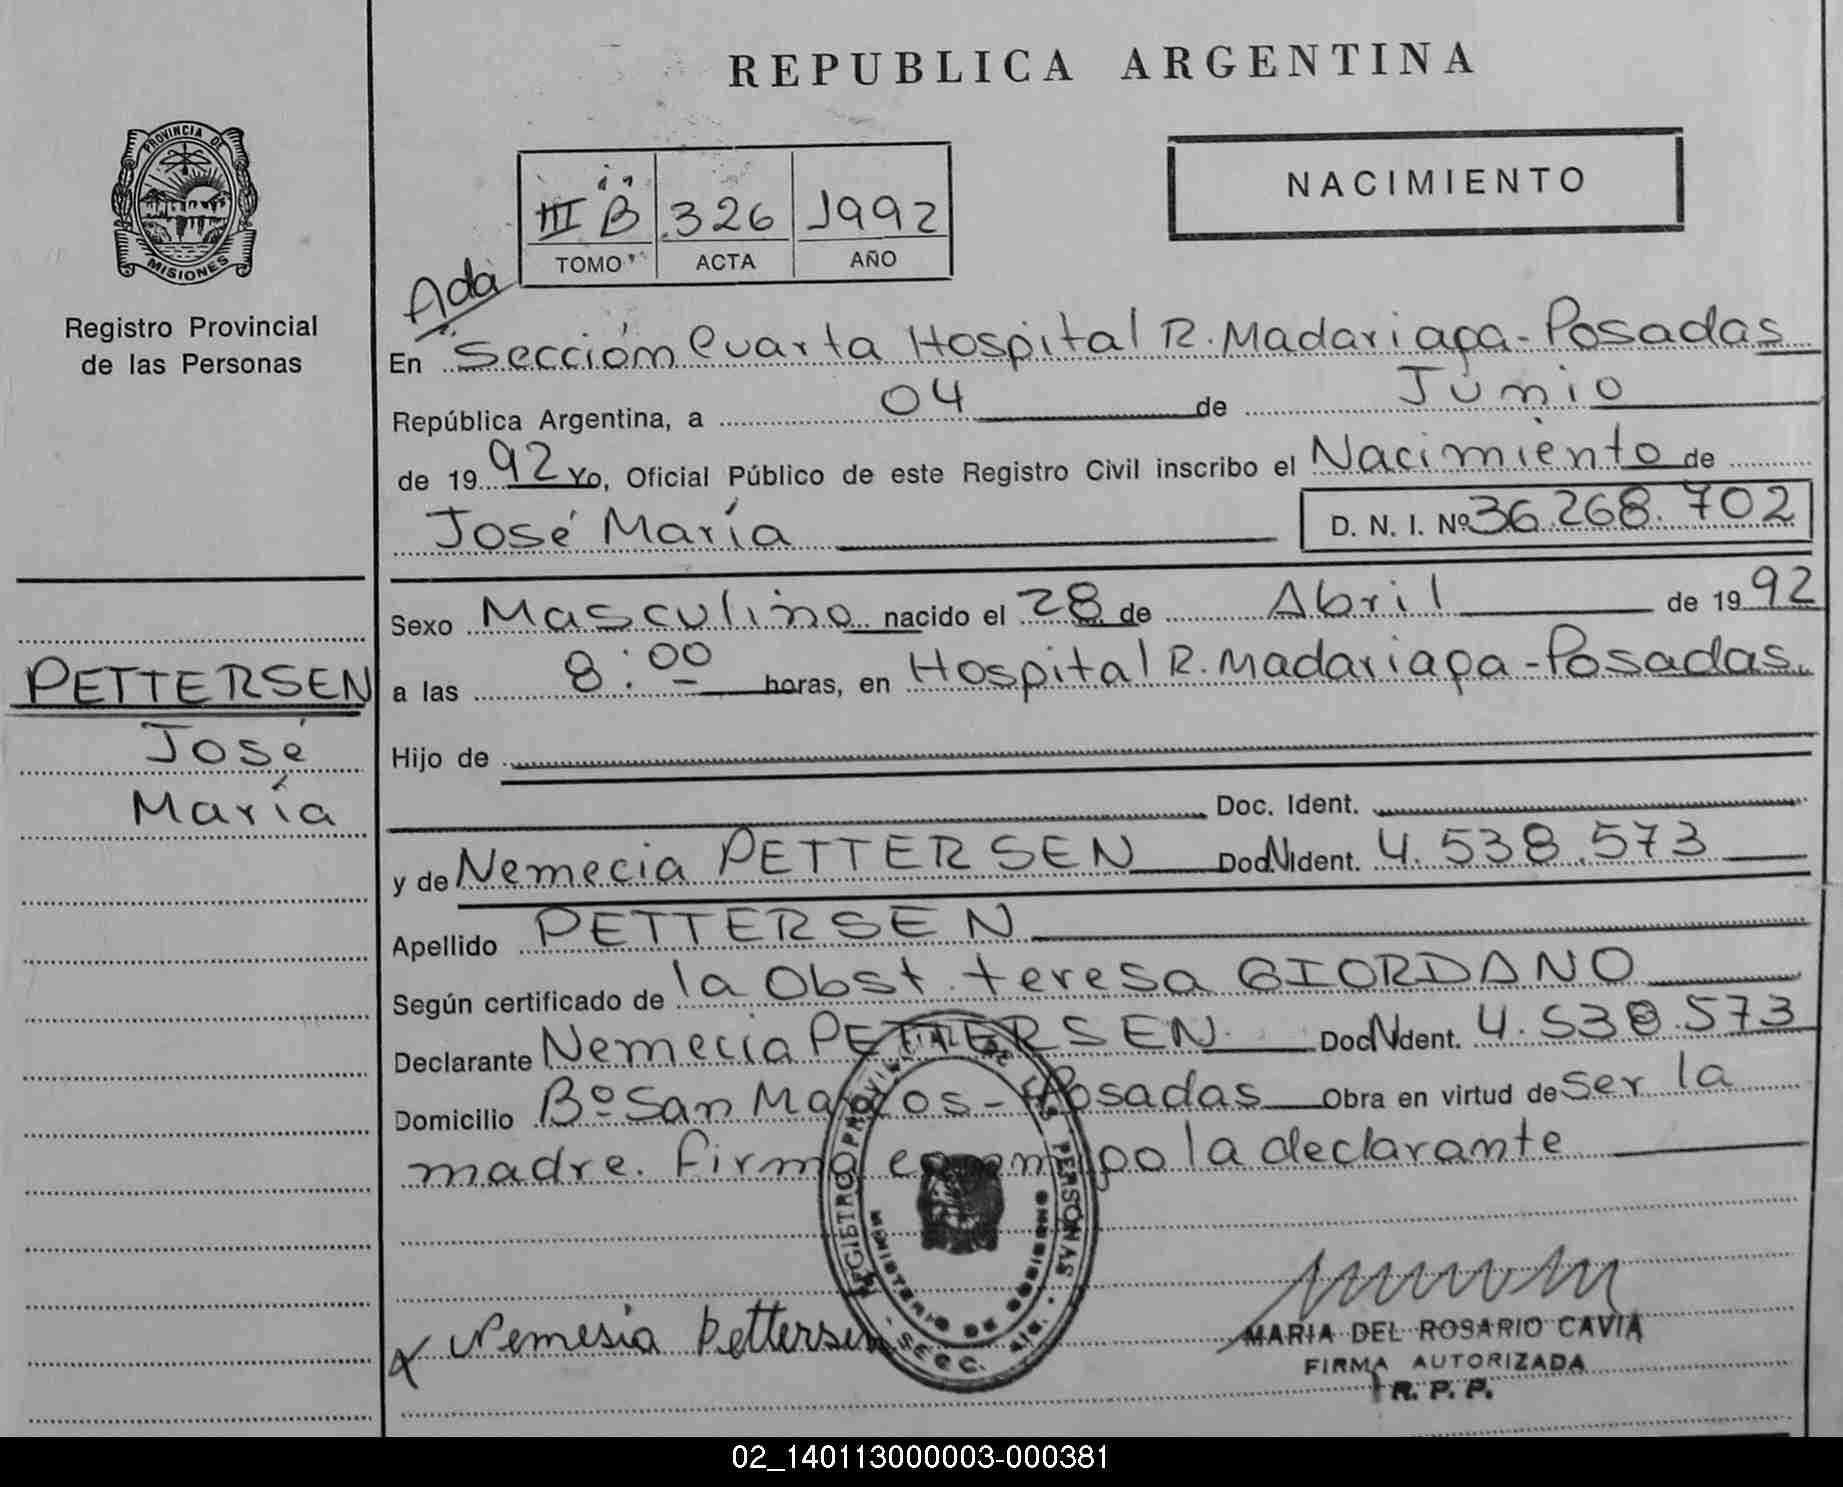 REPUBLICA ARGENTINA
PROVINCIA DE
MISIONES
Registro Provincial
de las Personas
NACIMIENTO
III "B" 326 1992
TOMO ACTA AÑO
Ada
En Sección Cuarta Hospital R. Madariaga - Posadas
República Argentina, a 04 de Junio
de 1992 Yo, Oficial Público de este Registro Civil inscribo el Nacimiento de
José María D. N. I. Nº 36.268.702
Sexo Masculino nacido el 28 de Abril de 1992
PETTERSEN
José
María
a las 8:00 horas, en Hospital R. Madariaga - Posadas
Hijo de
Doc. Ident.
y de Nemecia PETTERSEN Doc. N Ident. 4.538.573
Apellido PETTERSEN
Según certificado de la Obst. teresa GIORDANO
Declarante Nemecia PETTERSEN Doc N Ident. 4.538.573
Domicilio Bº San Marcos - Posadas Obra en virtud de ser la
madre. firma conmigo la declarante
REGISTRO PROVINCIAL DE LAS PERSONAS
MINISTERIO DE GOBIERNO
Nemesia Pettersen
MARIA DEL ROSARIO CAVIA
FIRMA AUTORIZADA
R. P. P.
02_140113000003-000381